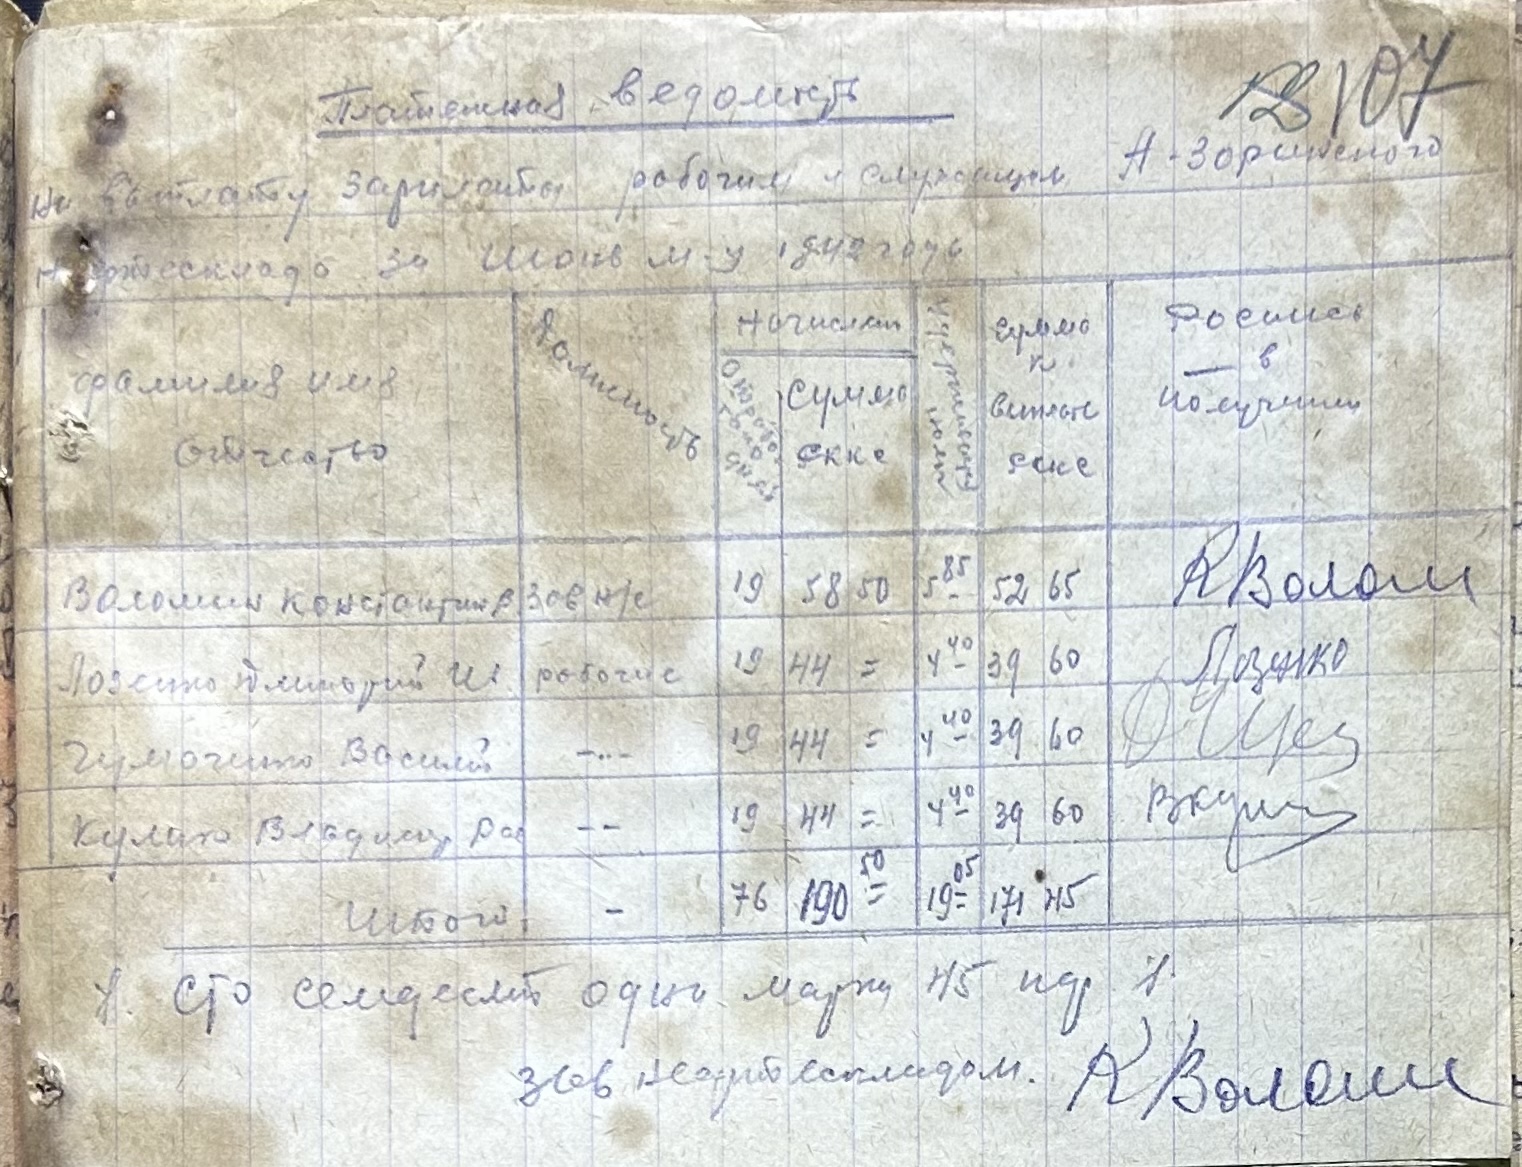 107
Платежная ведомость
на выплату зарплаты рабочим и служащим А-Зоринского
нефтесклада за Июнь м-ц 1942 года
Фамилия имя Отчество
Должность
Начислен
Отработано дней
Сумма
Сумма к выплате
Роспись в получении
Воломин Константин В Зав н/с 19 58 50 5 85 52 65 КВолом
Лозенко Дмитрий Ив. рабочие 19 44 = 4 40 39 60 Лозенко
Чумаченко Василий -"- 19 44 = 4 40 39 60
Кулико Владимир -- 19 44 = 4 40 39 60
Итого: - 76 190 50 19 05 171 45
Сто семдесят одна марка 45 пф
Зав нефтескладом. КВолом